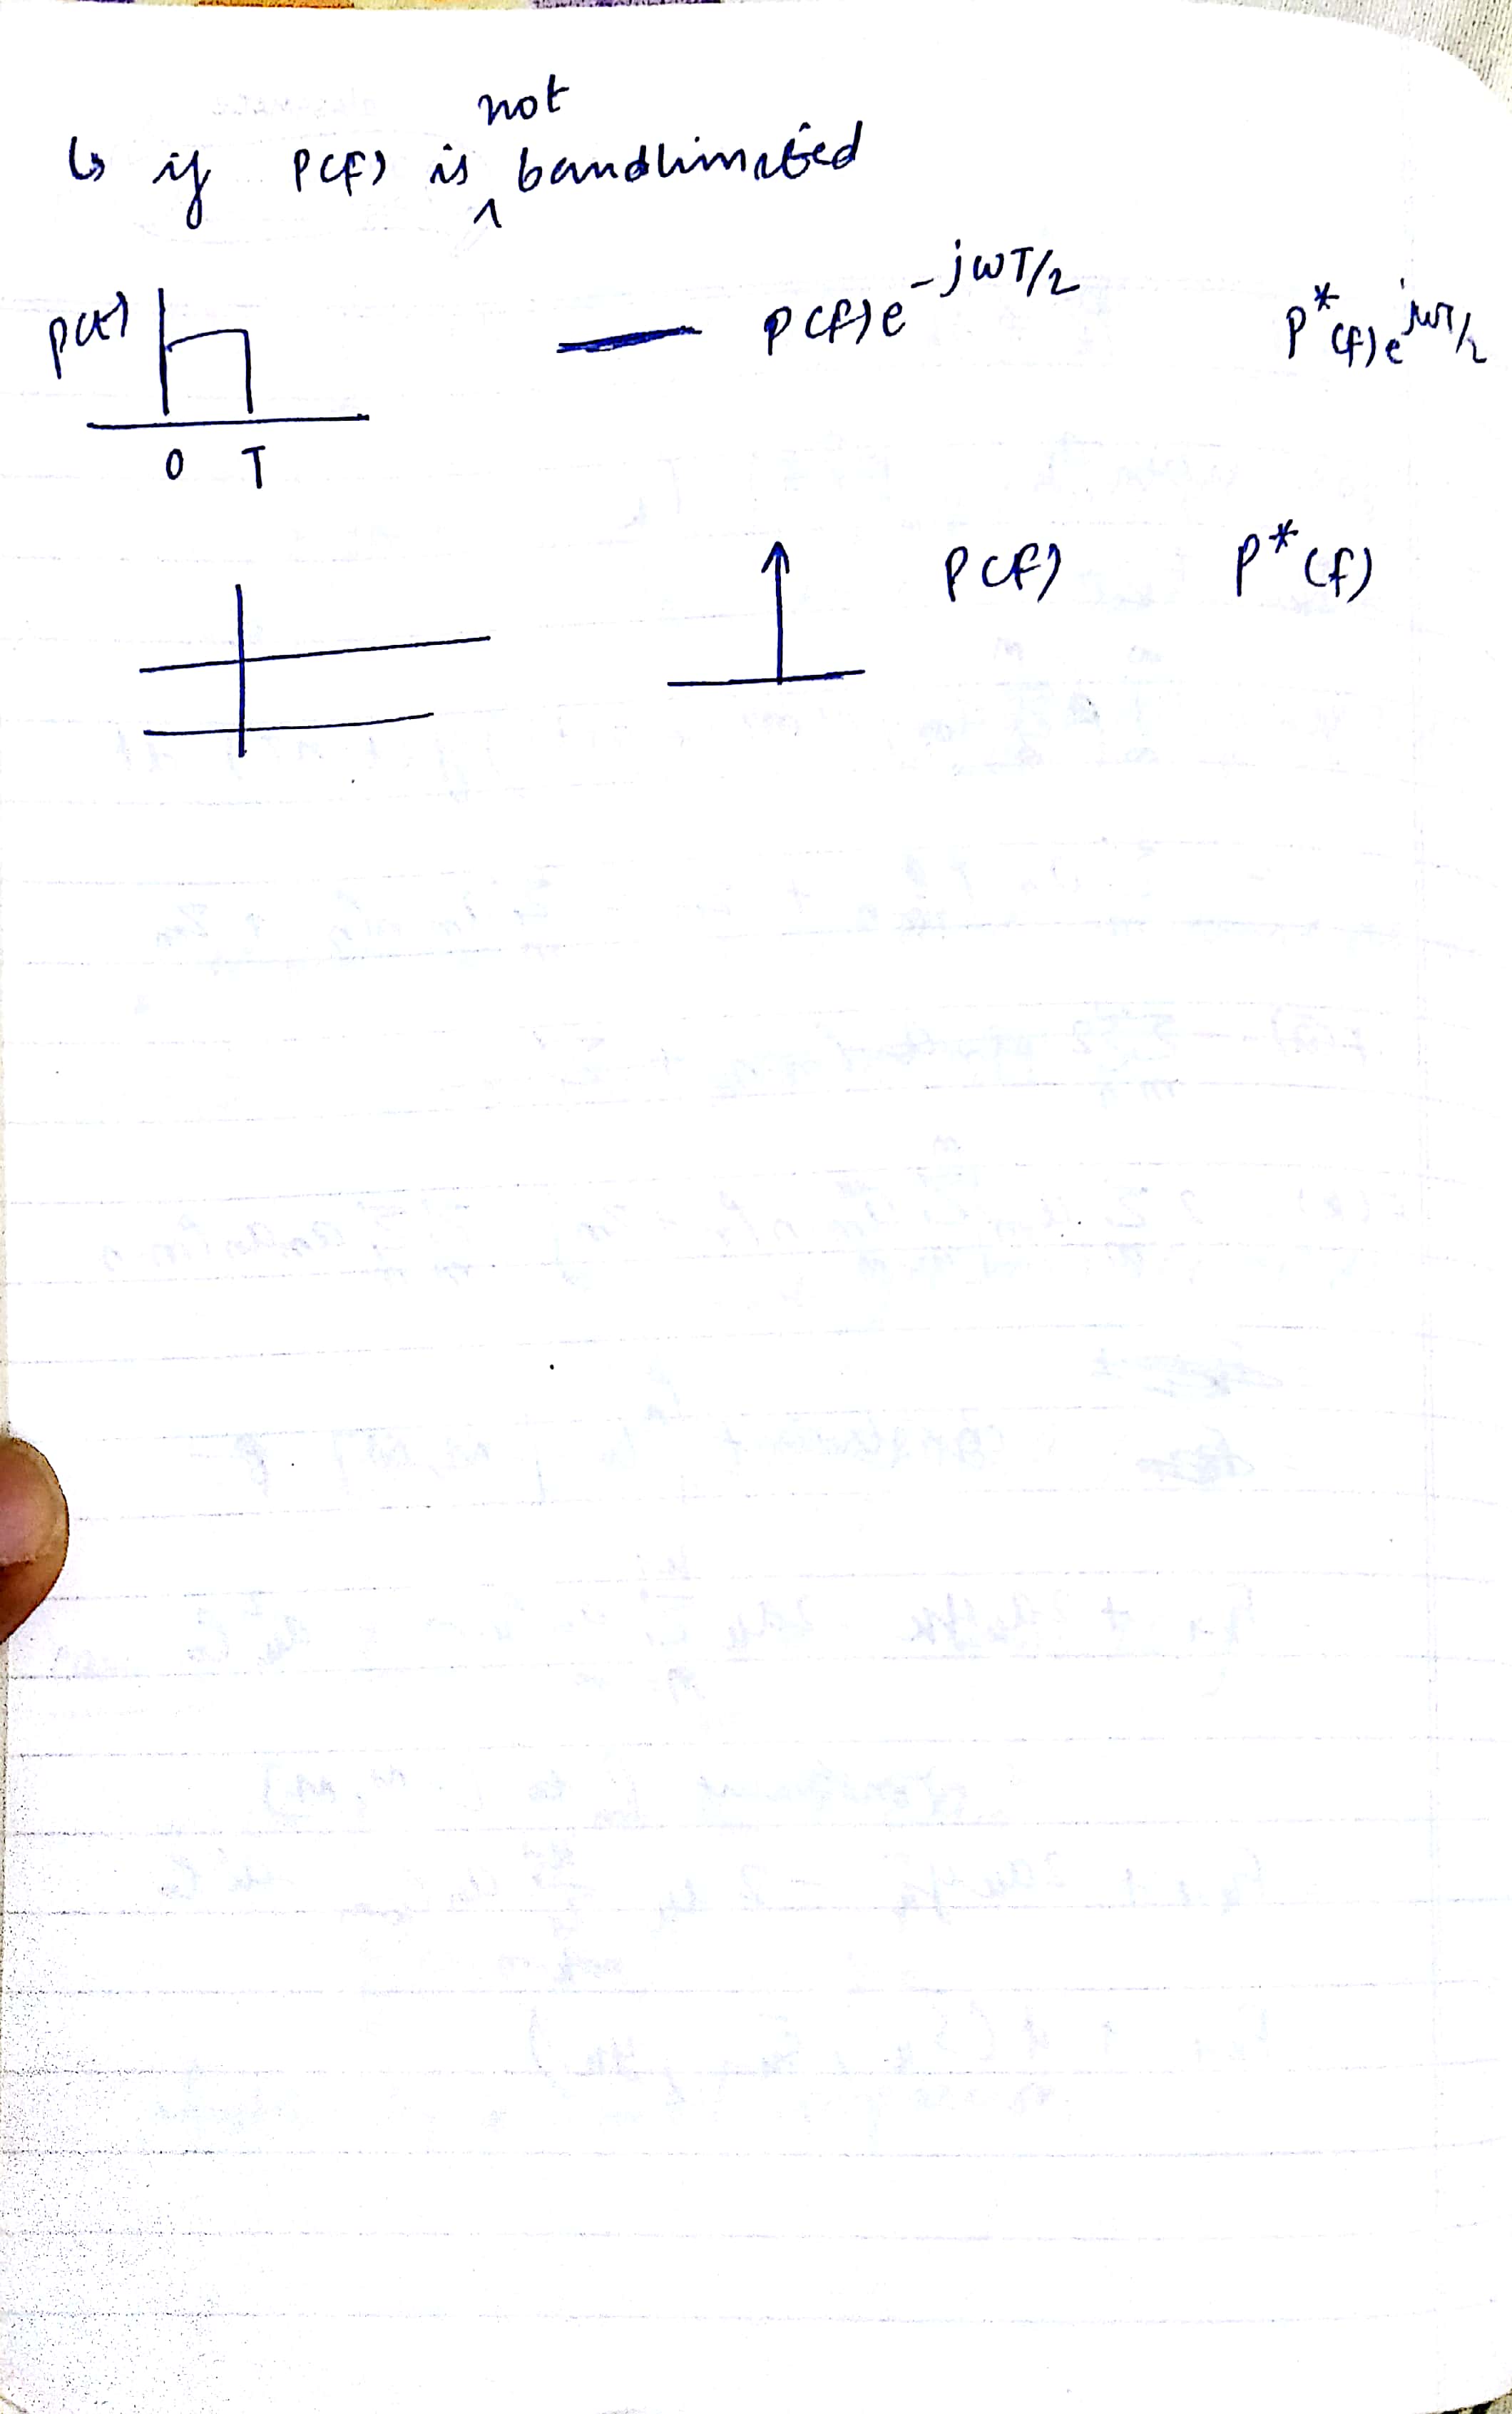 ↳ if P(f) is not bandlimited
p(t) P(f)e^-jωT/2 P*(f)e^jωT/2
0 T
P(f) P*(f)